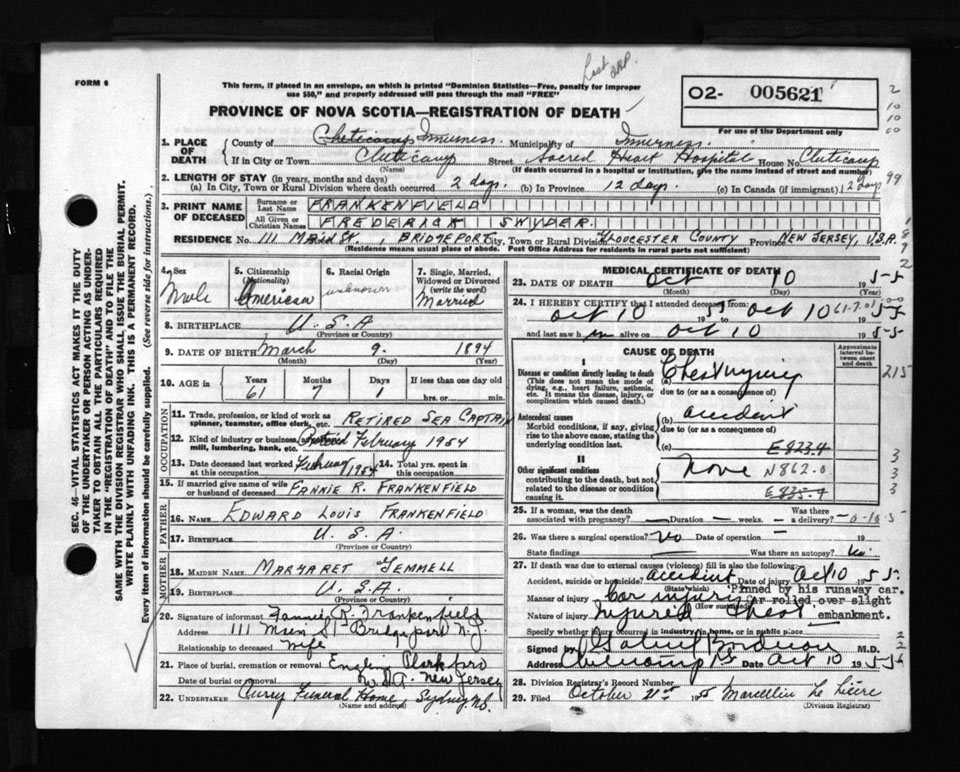 FORM 6
Last
This form, if placed in an envelope, on which is printed "Dominion Statistics—Free, penalty for improper
use $50," and properly addressed will pass through the mail "FREE"
O2- 005621
For use of the Department only
PROVINCE OF NOVA SCOTIA—REGISTRATION OF DEATH
1. PLACE OF DEATH
County of Cheticamp Inverness Municipality of Inverness
If in City or Town Cheticamp Street Sacred Heart Hospital House No. Cheticamp
(Name) (If death occurred in a hospital or institution, give the name instead of street and number)
2. LENGTH OF STAY (in years, months and days)
(a) In City, Town or Rural Division where death occurred 2 days. (b) In Province 12 days. (c) In Canada (if immigrant) 12 days
3. PRINT NAME OF DECEASED
Surname or Last Name FRANKENFIELD
All Given or Christian Names FREDERICK SNYDER.
RESIDENCE No. 111 MAIN ST., BRIDGEPORT, City, Town or Rural Division GLOUCESTER COUNTY Province NEW JERSEY, U.S.A.
(Residence means usual place of abode. Post Office Address for residents in rural parts not sufficient)
4. Sex Male
5. Citizenship (Nationality) American
6. Racial Origin unknown
7. Single, Married, Widowed or Divorced (write the word) Married
8. BIRTHPLACE U.S.A
(Province or Country)
9. DATE OF BIRTH March 9. 1894
(Month) (Day) (Year)
10. AGE in Years Months Days If less than one day old
61 7 hrs. or min.
OCCUPATION
11. Trade, profession, or kind of work as spinner, teamster, office clerk, etc. RETIRED SEA CAPTAIN
12. Kind of industry or business, as mill, lumbering, bank, etc. Retired February 1954
13. Date deceased last worked at this occupation February 1954 14. Total yrs. spent in this occupation
15. If married give name of wife or husband of deceased FANNIE R. FRANKENFIELD
FATHER
16. NAME EDWARD LOUIS FRANKENFIELD
17. BIRTHPLACE U.S.A.
(Province or Country)
MOTHER
18. MAIDEN NAME MARGARET GEMMELL
19. BIRTHPLACE U.S.A
(Province or Country)
20. Signature of informant Fannie R. Frankenfield
Address 111 Main St Bridgeport N.J.
Relationship to deceased Wife
21. Place of burial, cremation or removal
Date of burial or removal U.S.A. New Jersey
22. UNDERTAKER Curry Funeral Home, Sydney, NS.
(Name and address)
MEDICAL CERTIFICATE OF DEATH
23. DATE OF DEATH Oct 10 1955
(Month) (Day) (Year)
24. I HEREBY CERTIFY that I attended deceased from:
Oct 10 1955 to Oct 10 1955
and last saw him alive on Oct 10 1955
CAUSE OF DEATH
Approximate interval between onset and death
I
Disease or condition directly leading to death (a) Chest injury
(This does not mean the mode of dying, e.g., heart failure, asthenia, etc. It means the disease, injury, or complication which caused death.)
due to (or as a consequence of)
(b) accident
Antecedent causes
Morbid conditions, if any, giving rise to the above cause, stating the underlying condition last.
due to (or as a consequence of)
(c) E823.4
II
Other significant conditions contributing to the death, but not related to the disease or condition causing it.
None N862.0
E835.4
25. If a woman, was the death associated with pregnancy? — Duration — weeks. Was there a delivery?
26. Was there a surgical operation? No Date of operation — 19
State findings — Was there an autopsy? No
27. If death was due to external causes (violence) fill in also the following:
Accident, suicide or homicide? accident Date of injury Oct 10 1955
(State which)
Manner of injury Car injuries Pinned by his runaway car.
(How sustained) car rolled over slight
Nature of injury Injured chest embankment.
Specify whether injury occurred in industry, in home, or in public place
Signed by M.D.
Address Cheticamp NS Date Oct 10 1955
28. Division Registrar's Record Number
29. Filed October 21st 1955
(Division Registrar)
SEC. 46—VITAL STATISTICS ACT MAKES IT THE DUTY
OF THE UNDERTAKER OR PERSON ACTING AS UNDER-
TAKER TO OBTAIN ALL THE PARTICULARS REQUIRED
IN THE "REGISTRATION OF DEATH" AND TO FILE THE
SAME WITH THE DIVISION REGISTRAR WHO SHALL ISSUE THE BURIAL PERMIT.
WRITE PLAINLY WITH UNFADING INK. THIS IS A PERMANENT RECORD.
Every item of information should be carefully supplied. (See reverse side for instructions.)